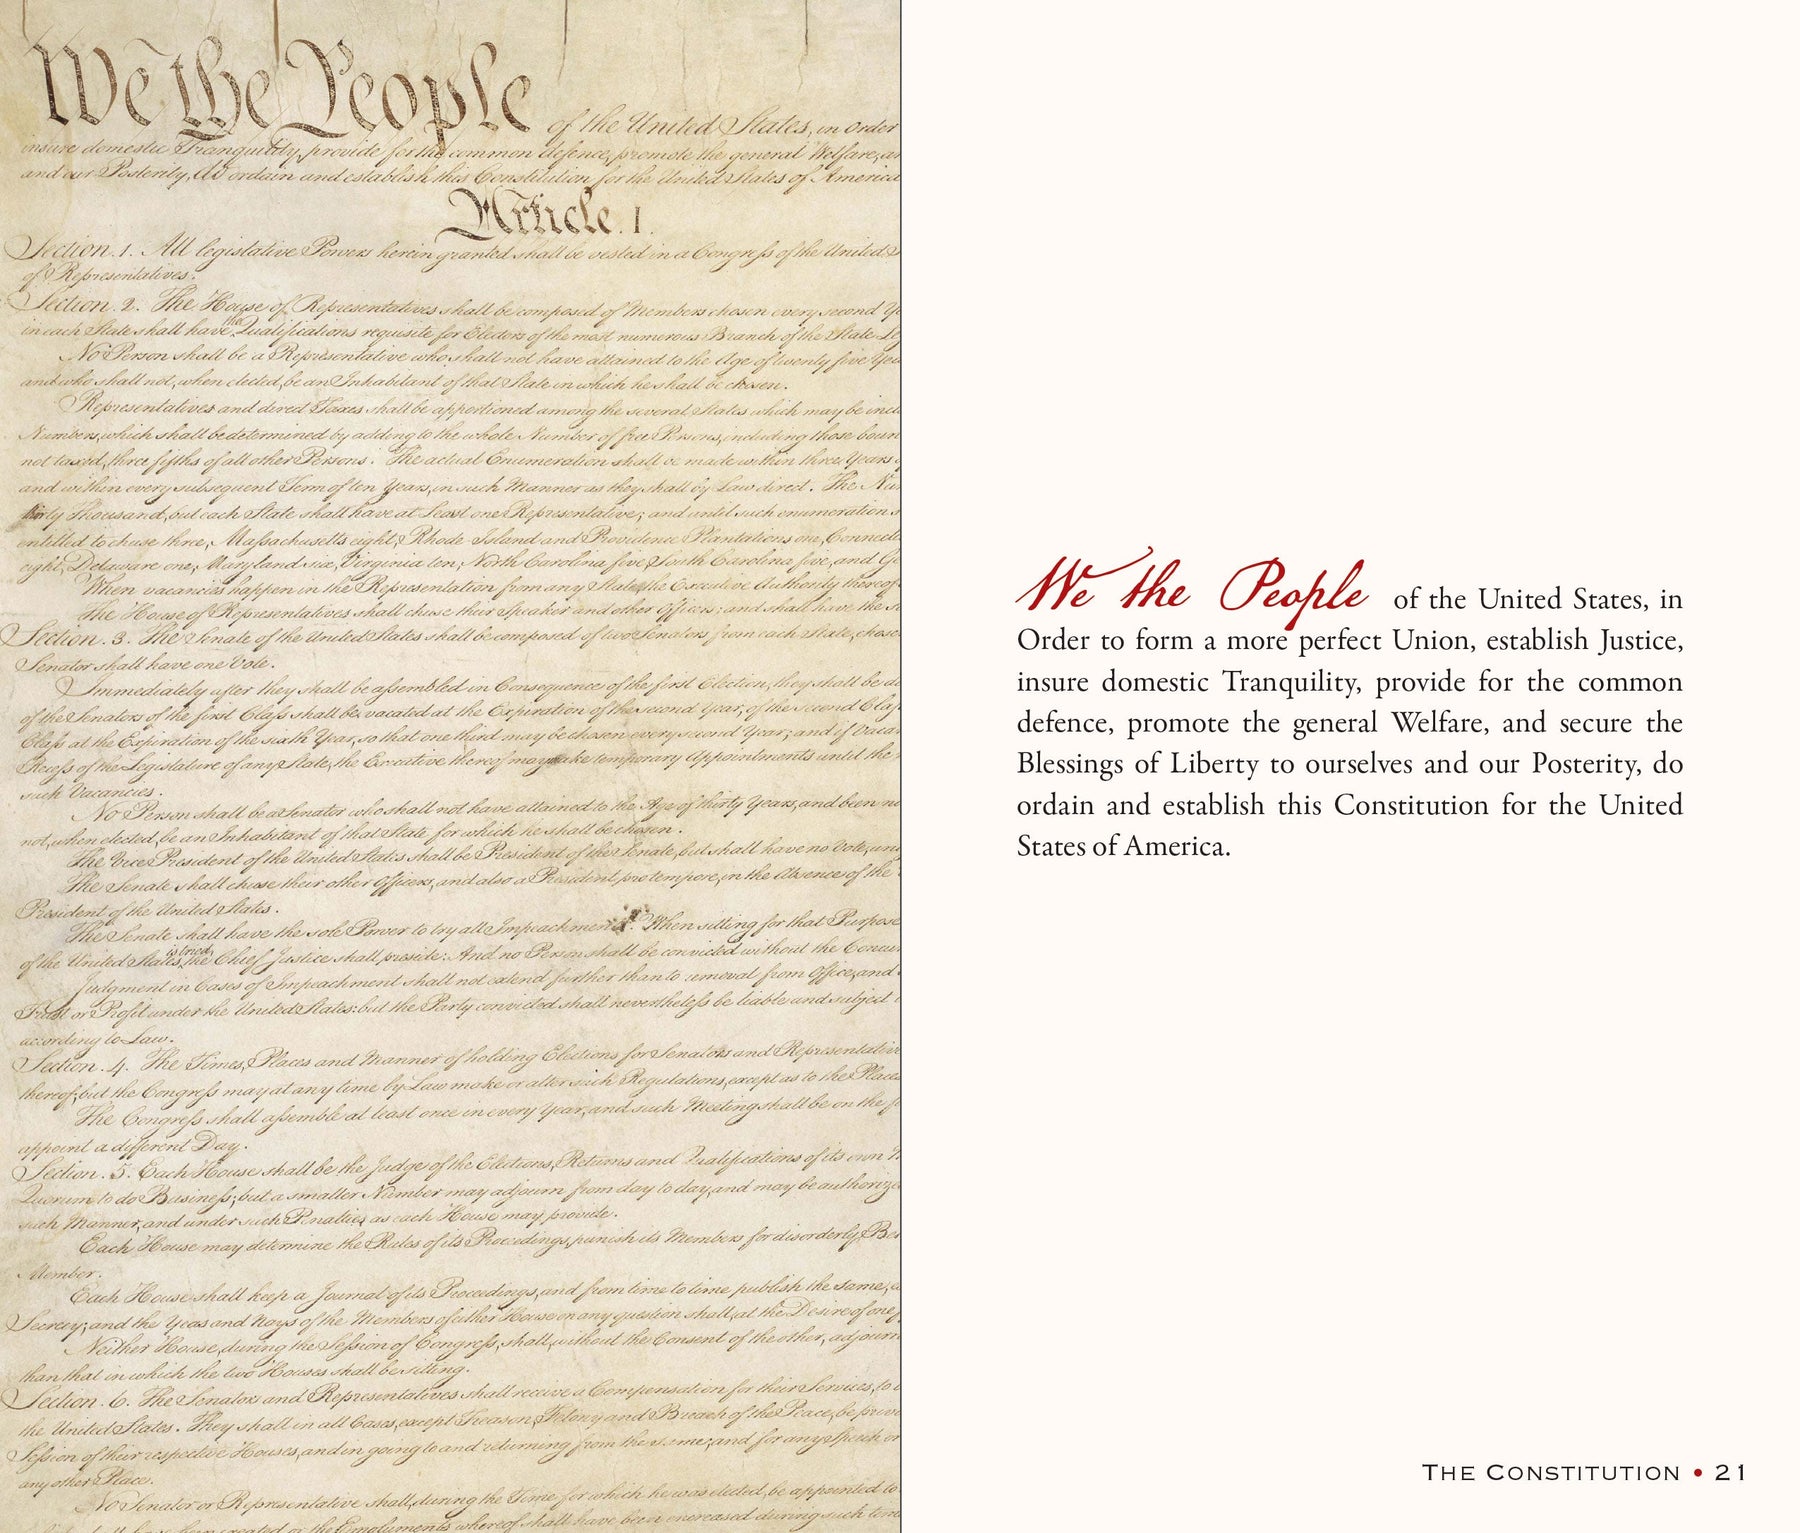 We the People of the United States, in Order
insure domestic Tranquility, provide for the common defence, promote the general Welfare, an
and our Posterity, do ordain and establish this Constitution for the United States of America
Article. I.
Section. 1. All legislative Powers herein granted shall be vested in a Congress of the United
of Representatives.
Section. 2. The House of Representatives shall be composed of Members chosen every second Ye
in each State shall have the Qualifications requisite for Electors of the most numerous Branch of the State Leg
No Person shall be a Representative who shall not have attained to the Age of twenty five Yea
and who shall not, when elected, be an Inhabitant of that State in which he shall be chosen.
Representatives and direct Taxes shall be apportioned among the several States which may be incl
Numbers, which shall be determined by adding to the whole Number of free Persons, including those boun
not taxed, three fifths of all other Persons. The actual Enumeration shall be made within three Years
and within every subsequent Term of ten Years, in such Manner as they shall by Law direct. The Nu
thirty Thousand, but each State shall have at Least one Representative; and until such enumeration s
entitled to chuse three, Massachusetts eight, Rhode-Island and Providence Plantations one, Connecti
eight, Delaware one, Maryland six, Virginia ten, North Carolina five, South Carolina five, and Ge
When vacancies happen in the Representation from any State, the Executive Authority thereof
The House of Representatives shall chuse their Speaker and other Officers; and shall have the s
Section. 3. The Senate of the United States shall be composed of two Senators from each State, chosen
Senator shall have one Vote.
Immediately after they shall be assembled in Consequence of the first Election, they shall be di
of the Senators of the first Class shall be vacated at the Expiration of the second Year, of the second Clas
Class at the Expiration of the sixth Year, so that one third may be chosen every second Year; and if Vaca
Recess of the Legislature of any State, the Executive thereof may make temporary Appointments until the
such Vacancies.
No Person shall be a Senator who shall not have attained to the Age of thirty Years, and been ni
not, when elected, be an Inhabitant of that State for which he shall be chosen.
The Vice President of the United States shall be President of the Senate, but shall have no Vote, unl
The Senate shall chuse their other Officers, and also a President pro tempore, in the Absence of the
President of the United States.
The Senate shall have the sole Power to try all Impeachments. When sitting for that Purpose
of the United States is tried, the Chief Justice shall preside: And no Person shall be convicted without the Concur
Judgment in Cases of Impeachment shall not extend further than to removal from Office, and
Trust or Profit under the United States: but the Party convicted shall nevertheless be liable and subject
according to Law.
Section. 4. The Times, Places and Manner of holding Elections for Senators and Representative
thereof; but the Congress may at any time by Law make or alter such Regulations, except as to the Places
The Congress shall assemble at least once in every Year, and such Meeting shall be on the f
appoint a different Day.
Section. 5. Each House shall be the Judge of the Elections, Returns and Qualifications of its own M
Quorum to do Business; but a smaller Number may adjourn from day to day, and may be authorize
such Manner, and under such Penalties as each House may provide.
Each House may determine the Rules of its Proceedings, punish its Members for disorderly Be
Member.
Each House shall keep a Journal of its Proceedings, and from time to time publish the same, e
Secrecy; and the Yeas and Nays of the Members of either House on any question shall, at the Desire of one
Neither House, during the Session of Congress, shall, without the Consent of the other, adjourn
than that in which the two Houses shall be sitting.
Section. 6. The Senators and Representatives shall receive a Compensation for their Services, to
the United States. They shall in all Cases, except Treason, Felony and Breach of the Peace, be privi
Session of their respective Houses, and in going to and returning from the same; and for any Speech or
any other Place.
No Senator or Representative shall, during the Time for which he was elected, be appointed to
shall have been created, or the Emoluments whereof shall have been encreased during such time
We the People of the United States, in
Order to form a more perfect Union, establish Justice,
insure domestic Tranquility, provide for the common
defence, promote the general Welfare, and secure the
Blessings of Liberty to ourselves and our Posterity, do
ordain and establish this Constitution for the United
States of America.
THE CONSTITUTION • 21